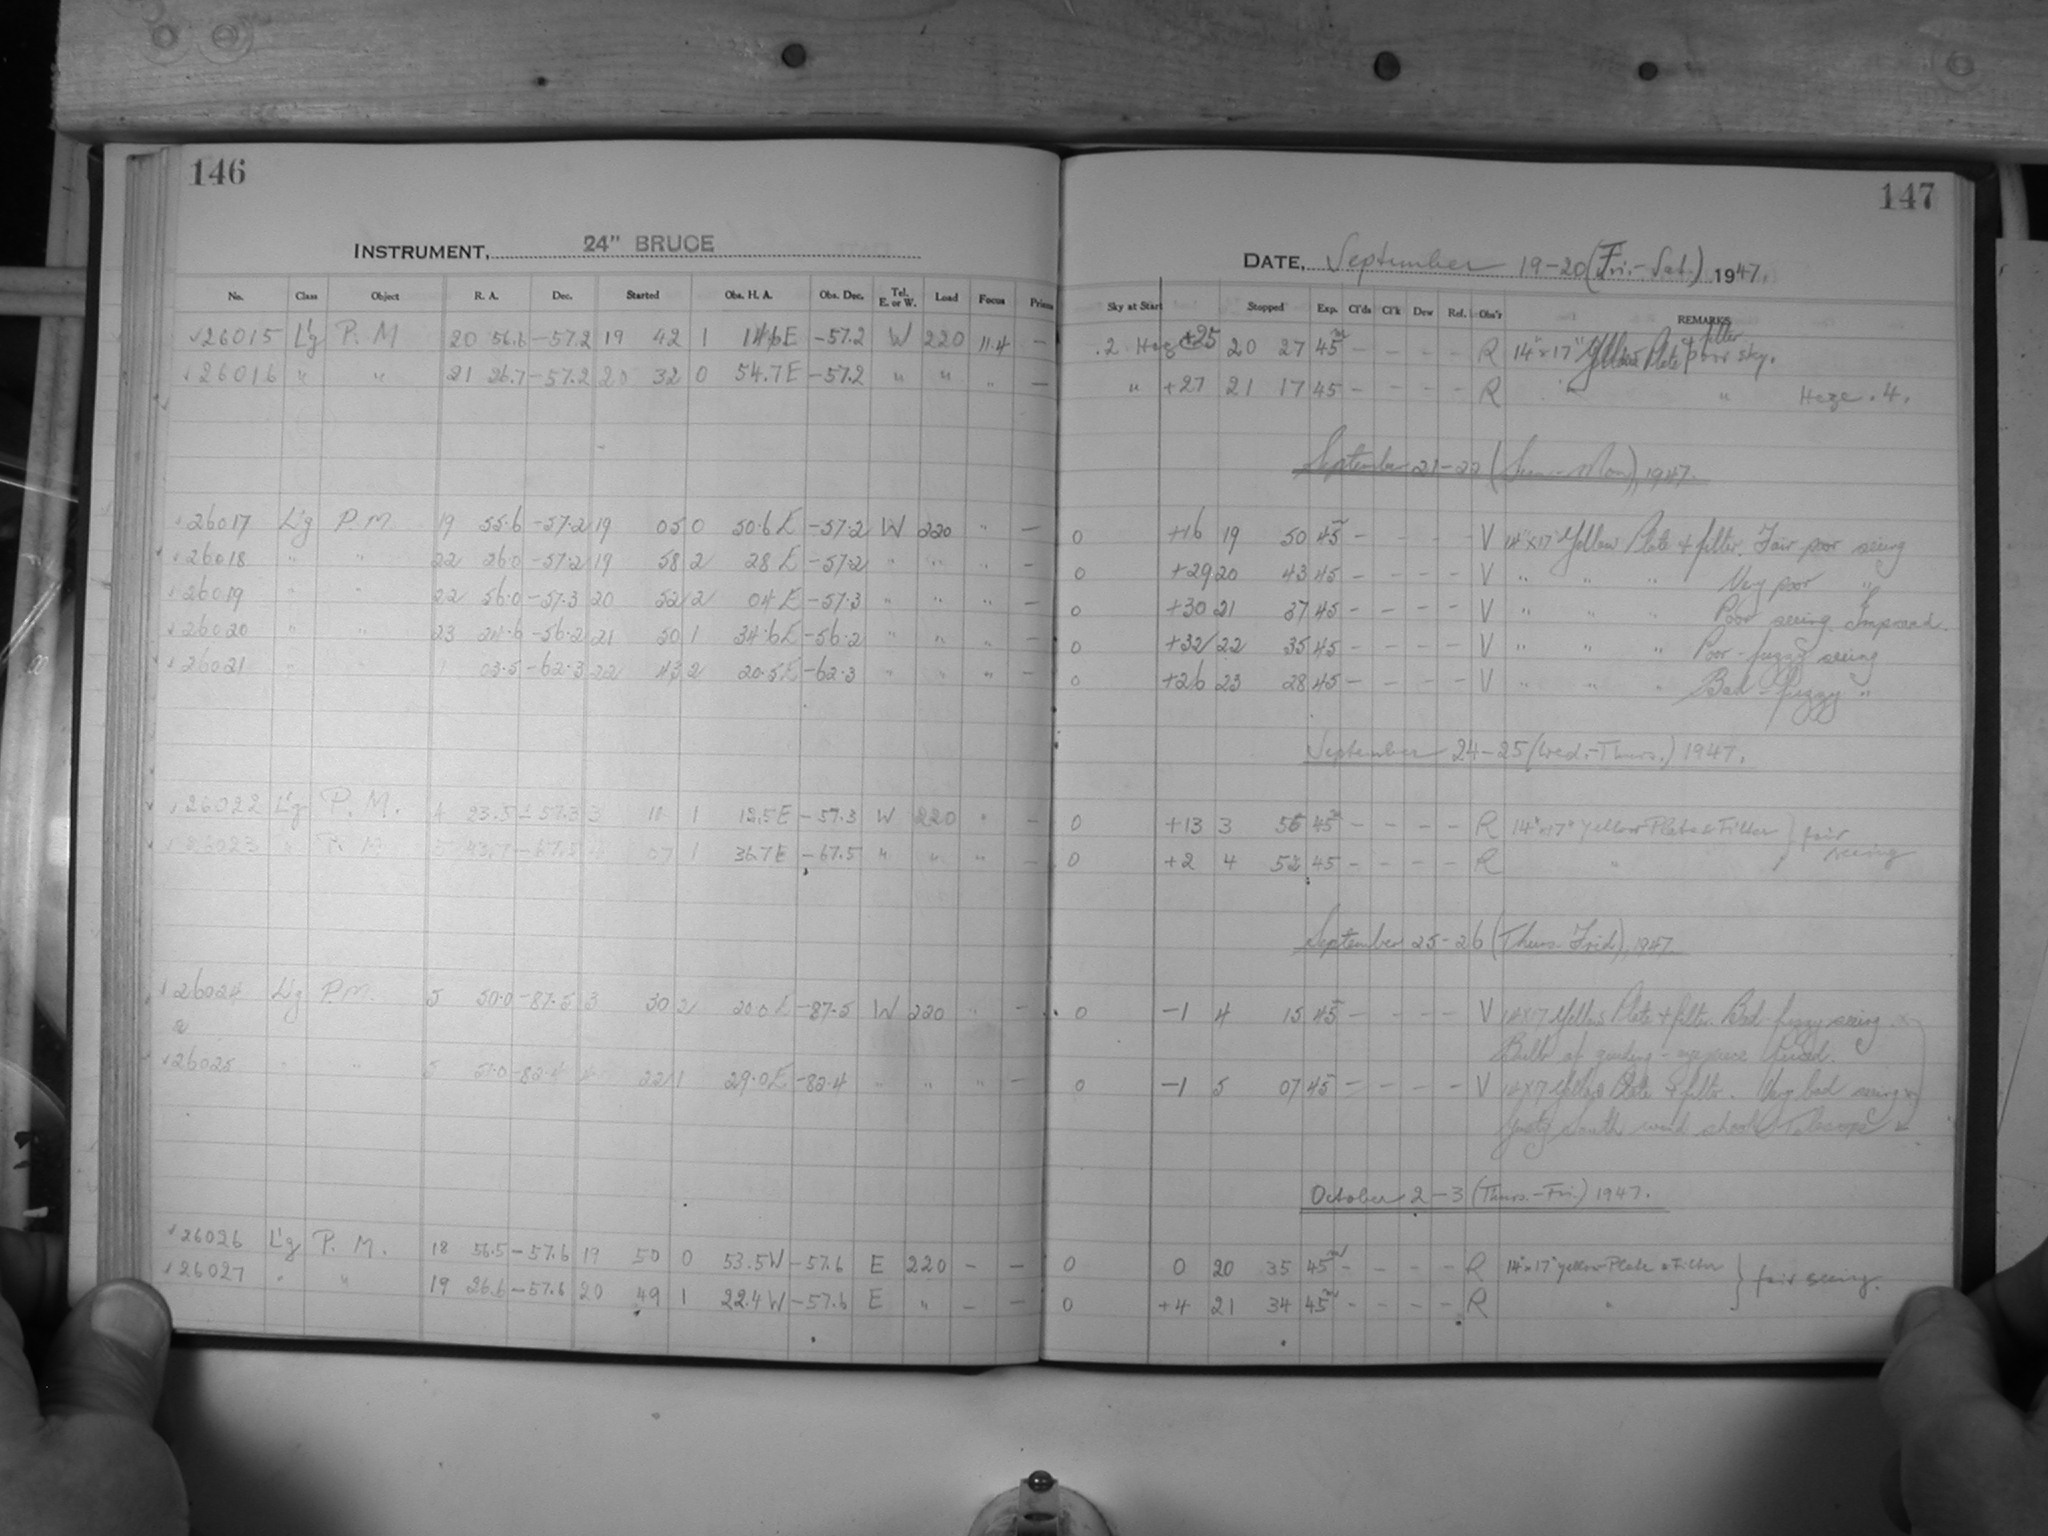 146
INSTRUMENT, 24" BRUCE
No. Class Object R. A. Dec. Started Obs. H. A. Obs. Dec. Tel. E. or W. Load Focus Prism
26015 L'g P. M 20 56.6 -57.2 19 42 1 14.6E -57.2 W 220 11.4 —
26016 " " 21 26.7 -57.2 20 32 0 54.7E -57.2 " " " —
26017 L'g P.M. 19 55.6 -57.2 19 05 0 50.6E -57.2 W 220 " —
26018 " " 22 26.0 -57.2 19 58 2 28E -57.2 " " " —
26019 " " 22 56.0 -57.3 20 52 2 04E -57.3 " " " —
26020 " " 23 24.6 -56.2 21 50 1 34.6E -56.2 " " " —
26021 " " 1 03.5 -62.3 22 43 2 20.5E -62.3 " " " —
26022 L'g P. M. 4 23.5 -57.3 3 11 1 12.5E -57.3 W 220 " —
26023 " P. M. 5 43.7 -67.5 4 07 1 36.7E -67.5 " " " —
26024 L'g P.M. 5 50.0 -87.5 3 30 2 20.0E -87.5 W 220 " —
26025 " " 5 51.0 -82.4 4 22 1 29.0E -82.4 " " " —
26026 L'g P. M. 18 56.5 -57.6 19 50 0 53.5W -57.6 E 220 — —
26027 " " 19 26.6 -57.6 20 49 1 22.4W -57.6 E " — —
147
DATE, September 19-20 (Fri.-Sat.) 1947.
Sky at Start Stopped Exp. Cl'ds Cl'k Dew Ref. Obs'r REMARKS
.2 Haz +25 20 27 45m — — — — R 14"x17" Yellow Plate + filter poor sky.
" +27 21 17 45 — — — — R " " Haze .4.
September 21-22 (Sun.-Mon), 1947.
0 +16 19 50 45m — — — — V 14"x17" Yellow Plate + filter. Fair poor seeing
0 +29 20 43 45 — — — — V " " " Very poor "
0 +30 21 37 45 — — — — V " " " Poor seeing. Improved.
0 +32 22 35 45 — — — — V " " " Poor-fuzzy seeing
0 +26 23 28 45 — — — — V " " " Bad-fuzzy "
September 24-25 (Wed.-Thurs.) 1947.
0 +13 3 56 45m — — — — R 14"x17" Yellow Plate & Filter } fair seeing
0 +2 4 52 45 — — — — R "
September 25-26 (Thurs-Frid), 1947.
0 -1 4 15 45m — — — — V 14x17 Yellow Plate + filter. Bad fuzzy seeing
Bulb of guiding-eyepiece fused.
0 -1 5 07 45 — — — — V 14x17 Yellow Plate + filter. Very bad seeing
Gusty South wind shook Telescope
October 2-3 (Thurs.-Fri.) 1947.
0 0 20 35 45m — — — — R 14"x17" Yellow Plate & Filter } fair seeing.
0 +4 21 34 45m — — — — R "